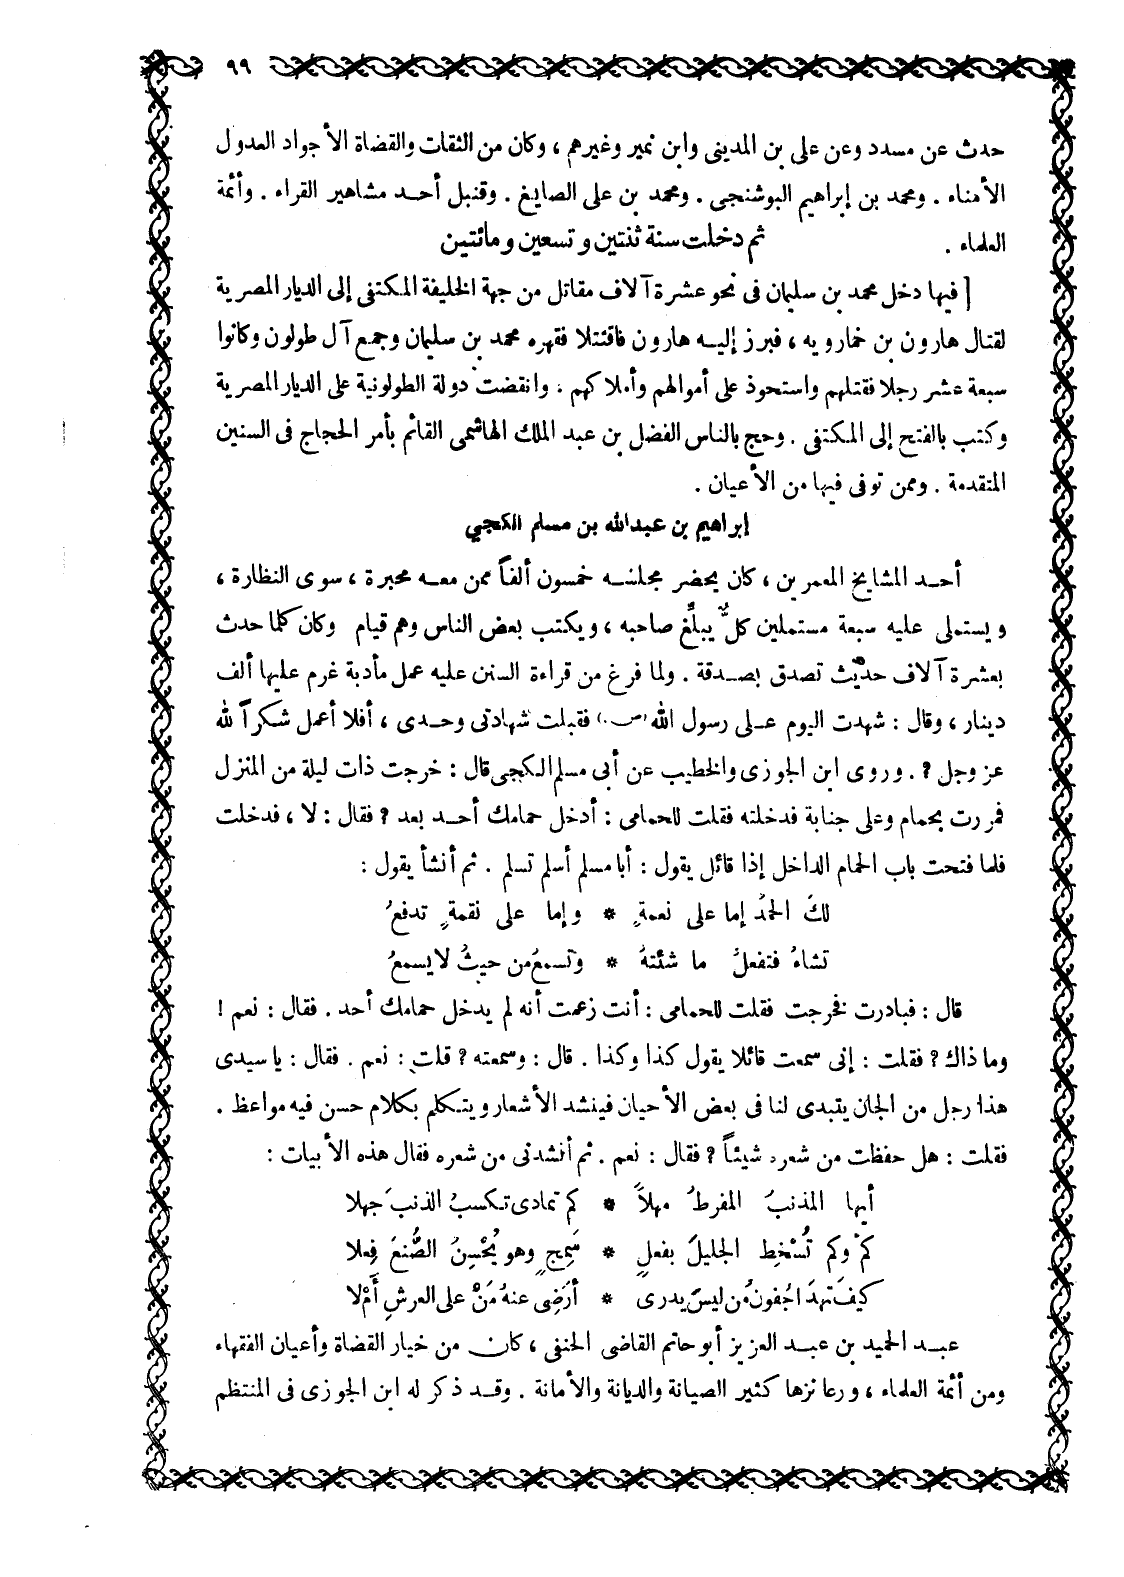 ٩٩
حدث عن مسدد وعن على بن المدينى وابن نمير وغيرهم ، وكان من الثقات والقضاة الأجواد العدول
الأمناء . ومحمد بن إبراهيم البوشنجى . ومحمد بن على الصايغ . وقنبل أحد مشاهير القراء . وأئمة
العلماء .
ثم دخلت سنة ثنتين وتسعين ومائتين
[ فيها دخل محمد بن سليمان فى نحو عشرة آلاف مقاتل من جهة الخليفة المكتفى إلى الديار المصرية
لقتال هارون بن خمارويه ، فبرز إليه هارون فاقتتلا فقهره محمد بن سليمان وجمع آل طولون وكانوا
سبعة عشر رجلا فقتلهم واستحوذ على أموالهم وأملاكهم . وانقضت دولة الطولونية على الديار المصرية
وكتب بالفتح إلى المكتفى . وحج بالناس الفضل بن عبد الملك الهاشمى القائم بأمر الحجاج فى السنين
المتقدمة . وممن توفى فيها من الأعيان .
إبراهيم بن عبدالله بن مسلم الكجي
أحد المشايخ المعمرين ، كان يحضر مجلسه خمسون ألفاً ممن معه محبرة ، سوى النظارة ،
ويستملى عليه سبعة مستملين كلٌّ يبلِّغ صاحبه ، ويكتب بعض الناس وهم قيام وكان كلما حدث
بعشرة آلاف حديث تصدق بصدقة . ولما فرغ من قراءة السنن عليه عمل مأدبة غرم عليها ألف
دينار ، وقال : شهدت اليوم على رسول الله (ص) فقبلت شهادتى وحدى ، أفلا أعمل شكراً لله
عز وجل ? . وروى ابن الجوزى والخطيب عن أبى مسلم الكجى قال : خرجت ذات ليلة من المنزل
فمررت بحمام وعلى جنابة فدخلته فقلت للحمامى : أدخل حمامك أحد بعد ? فقال : لا ، فدخلت
فلما فتحت باب الحمام الداخل إذا قائل يقول : أبا مسلم أسلم تسلم . ثم أنشأ يقول :
لكَ الحمدُ إما على نعمةٍ * وإما على نقمةٍ تدفعُ
تشاءُ فتفعلُ ما شئتهُ * وتسمعُ من حيثُ لا يسمعُ
قال : فبادرت فخرجت فقلت للحمامى : أنت زعمت أنه لم يدخل حمامك أحد . فقال : نعم !
وما ذاك ? فقلت : إنى سمعت قائلا يقول كذا وكذا . قال : وسمعته ? قلت : نعم . فقال : يا سيدى
هذا رجل من الجان يتبدى لنا فى بعض الأحيان فينشد الأشعار ويتكلم بكلام حسن فيه مواعظ .
فقلت : هل حفظت من شعره شيئاً ? فقال : نعم . ثم أنشدنى من شعره فقال هذه الأبيات :
أيها المذنبُ المفرطُ مهلاً * كم تمادى تكسبُ الذنبَ جهلا
كمْ وكم تُسْخِط الجليلَ بفعلٍ * سَمِجٍ وهو يُحْسِنُ الصُّنعَ فِعلا
كيفَ تهدَا جُفونُ من ليسَ يدرى * أرَضِى عنهُ مَنْ على العرشِ أَمْ لا
عبد الحميد بن عبد العزيز أبو حاتم القاضى الحنفى ، كان من خيار القضاة وأعيان الفقهاء
ومن أئمة العلماء ، ورعا نزها كثير الصيانة والديانة والأمانة . وقد ذكر له ابن الجوزى فى المنتظم